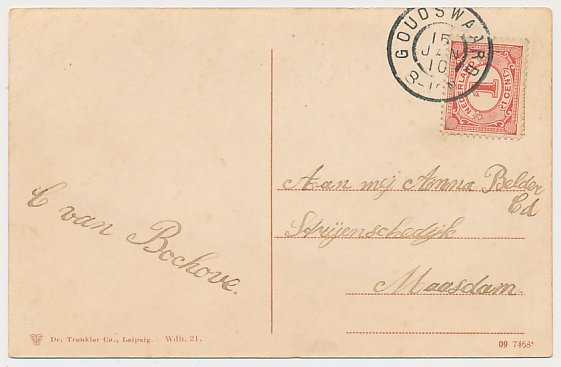 GOUDSWAARD
16
JAN
10
8-
NEDERLAND
1
1 CENT
C van Bochove.
Aan mej Anna Belder
Cd
Strijenschedijk
Maasdam.
Dr. Trenkler Co., Leipzig. Wdb. 21.
09 7468*